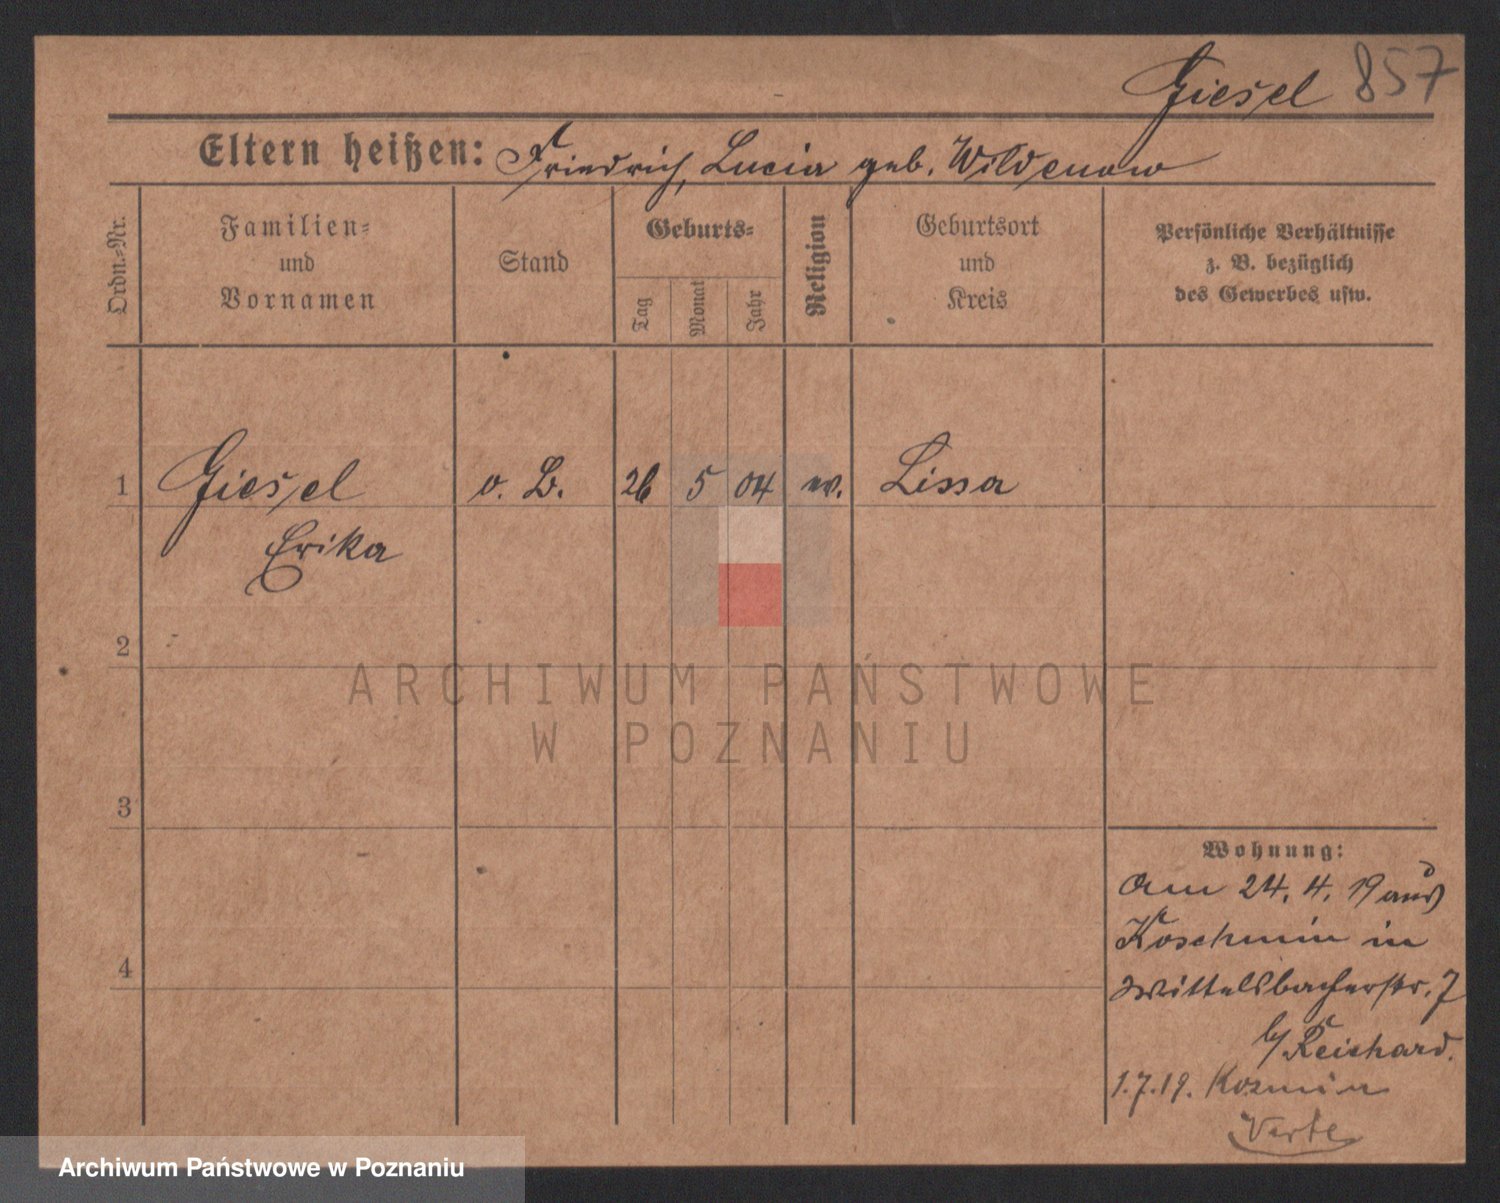 Giesel 857
Eltern heißen: Friedrich, Lucia geb. Wildenow
Ordn.=Nr.
Familien=
und
Vornamen
Stand
Geburts=
Tag
Monat
Jahr
Religion
Geburtsort
und
Kreis
Persönliche Verhältnisse
z. B. bezüglich
des Gewerbes usw.
1 Giesel o. B. 26 5 04 ev. Lissa
Erika
2
3
4
Wohnung:
am 24. 4. 19 aus
Koschmin in
Wittelsbacherstr. 7
b/ Reichard.
1.7.19. Kozmin
Verte
ARCHIWUM PAŃSTWOWE
W POZNANIU
Archiwum Państwowe w Poznaniu